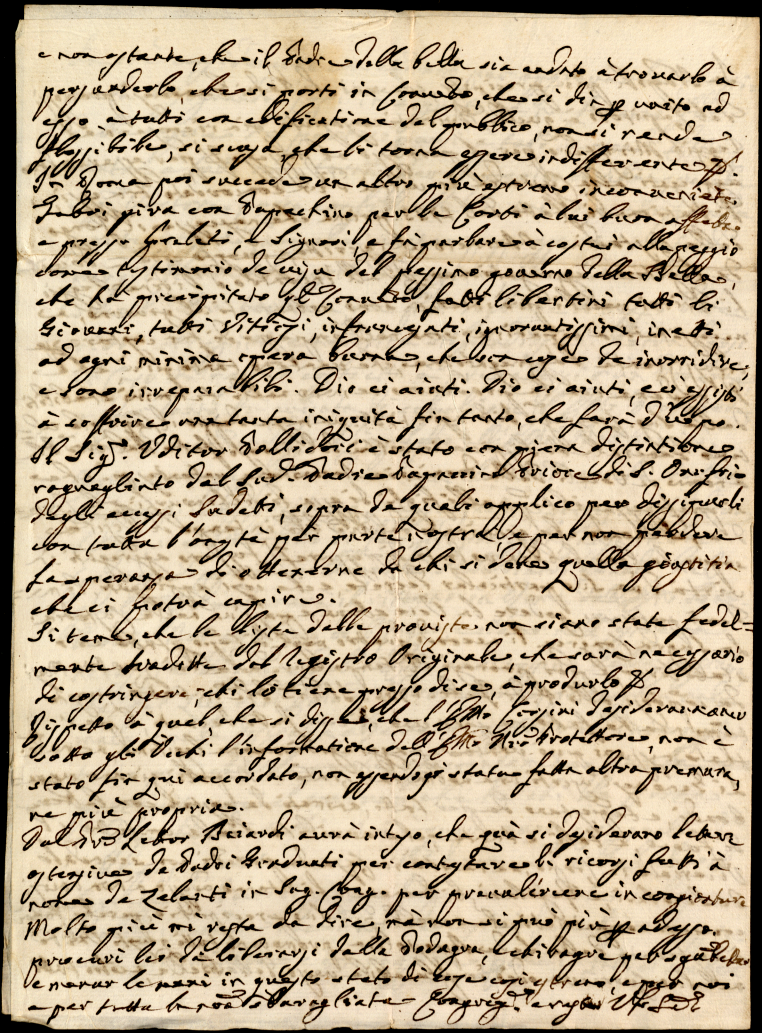 e non ostante, che il Padre della bella sia andato à trovarlo à
persuaderlo, che si porti in Convento, che si dia unito ad
esso à tutti con edificatione del publico, non si rende
flessibile, si scusa, che li torna essere indifferente
In Roma poi succede un altro più estremo inconveniente.
gira con Papachino per le Corti à lui
e presso Prelati, e Signori, e fà parlare à costui alla peggio
come testimonio de visu del pessimo governo della Bella,
che ha precipitato Convento, fatti libertini tutti li
Giovani, tutti Vitiosi, infranciosati, ignorantissimi, inetti
ad ogni minima opera buona, che son cose da inorridire,
e sono irreparabili. Dio ci aiuti. Dio ci aiuti, e ci assisti
à soffrire una tanta iniquità fin tanto, che farà d'uopo.
Il Sig.r Uditor è stato con piena distintione
ragguagliato dal Sud.o Padre Priore di S. Onofrio
degli eccessi sudetti, sopra de quali applico per dissiparli
con tutta l'onestà per parte nostra, e per non perdere
la speranza di ottenerne da chi si deve quella giustitia
che ci potrà capire.
Si teme, che le liste delle proviste non siano state fedel=
mente tradotte dal Registro Originale, che sarà necessario
di costringere, chi lo tiene presso di se, à produrlo
Rispetto à quel, che si disse, che l'Em̃o Corsini desiderava
sotto gli Occhi l'informatione dell'Em̃o Nr̃o Protettore, non è
stato fin qui accordato, non essendogli stata fatta altra premura,
ne più propria.
Dal Pr̃e Lettor avrà inteso, che quà si desiderano lettere
ostensive de Padri Graduati per contestare li ricorsi fatti à
nome de Zelanti in Sag. Cong. per prevalersene in
Molto più mi resta da dire, mà non si può più adesso.
procuri lei di liberarsi dalla Podagra, e chiragra, per
e menar le mani in questo stato di cose così estremo, e per noi
e per tutta la sbaragliata Congreg.e e resto